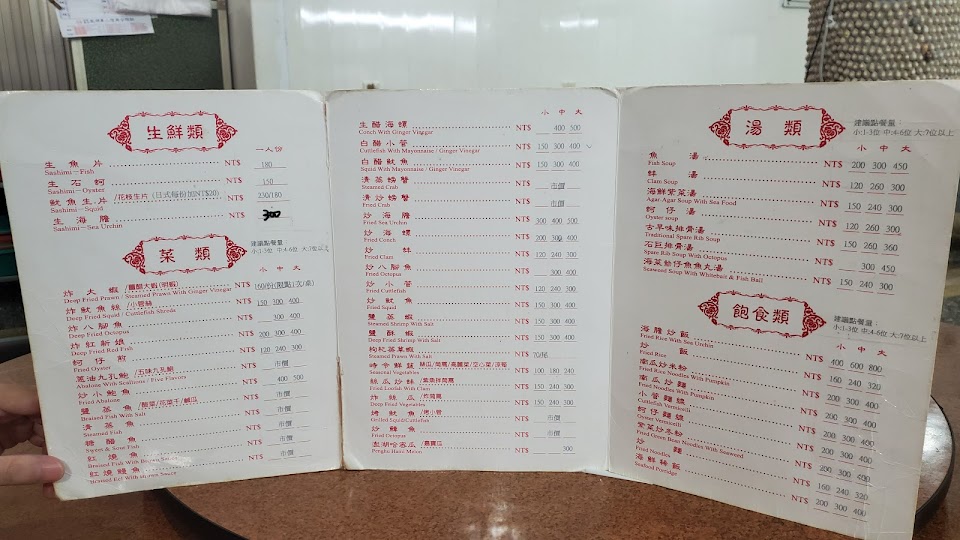 生鮮類
一人份
生魚片 NT$ 180
Sashimi-Fish
生石蚵 NT$ 150
Sashimi-Oyster
魷魚生片/花枝生片(日式每份加NT$20) NT$ 230/180
Sashimi-Squid
生海膽 NT$ 300
Sashimi-Sea Urchin
菜類
建議點餐量
小:1-3位 中:4-6位 大:7位以上
小 中 大
炸大蝦 NT$
Deep Fried Prawn / Steamed Prawn With Ginger Vinegar
炸魷魚絲/小管絲 NT$ 150 300 400
Deep Fried Squid / Cuttlefish Shreds
炸八腳魚 NT$ 300 400
Deep Fried Octopus
炸紅新娘 NT$ 200 300 400
Deep Fried Red Fish
蚵仔煎 NT$ 120 240 300
Fried Oyster
蔥油九孔鮑/五味九孔鮑 NT$ 市價
Abalone With Scallions / Five Flavors
炒小鮑魚 NT$ 400 500
Fried Abalone
鹽蒸魚 NT$ 市價
Braised Fish With Salt
清蒸魚 NT$ 市價
Steamed Fish
糖醋魚 NT$ 市價
Sweet & Sour Fish
紅燒魚 NT$ 市價
紅燒鰻魚 NT$ 市價
小 中 大
生醋海螺 NT$ 400 500
Conch With Ginger Vinegar
白醋小管 NT$ 150 300 400
Cuttlefish With Mayonnaise / Ginger Vinegar
白醋魷魚 NT$ 150 300 400
Squid With Mayonnaise / Ginger Vinegar
清蒸螃蟹 NT$ 市價
Steamed Crab
清炒螃蟹 NT$ 市價
Fried Crab
炒海膽 NT$ 300 400 500
Fried Sea Urchin
炒海螺 NT$ 200 300 400
Fried Conch
炒蚌 NT$ 120 240 300
Fried Clam
炒八腳魚 NT$ 300 400
Fried Octopus
炒小管 NT$ 120 240 300
Fried Cuttlefish
炒魷魚 NT$ 150 300 400
Fried Squid
鹽蒸蝦 NT$ 150 300 400
Steamed Shrimp With Salt
鹽酥蝦 NT$ 150 300 400
Deep Fried Shrimp With Salt
枸杞蒸草蝦 NT$ 70/尾
Steamed Prawn With Salt
時令鮮蔬 NT$ 100 180 240
Seasonal Vegetables
絲瓜炒蚌 NT$ 150 240 300
Fried Loofah With Clam
炸絲瓜 NT$ 150 240 300
Deep Fried Vegetables
烤魷魚/烤小管 NT$ 150 300 400
Grilled Squid/Cuttlefish
Fried Octopus NT$ 市價
澎湖哈蜜瓜/嘉寶瓜 NT$ 300
Penghu Hami Melon
湯類
建議點餐量:
小:1-3位 中:4-6位 大:7位以上
小 中 大
魚湯 NT$ 200 300 450
Fish Soup
蚌湯 NT$ 120 260 300
Clam Soup
海鮮紫菜湯 NT$ 150 240 300
Agar-Agar Soup With Sea Food
蚵仔湯 NT$ 120 260 300
Oyster soup
古早味排骨湯 NT$ 150 260 360
Traditional Spare Rib Soup
石巨排骨湯 NT$ 300 450
Spare Rib Soup With Octopus
海菜魩仔魚魚丸湯 NT$ 150 240 300
Seaweed Soup With Whitebait & Fish Ball
飽食類
建議點餐量:
小:1-3位 中:4-6位 大:7位以上
小 中 大
海膽炒飯 NT$ 400 600 800
Fried Rice With Sea Urchin
炒飯 NT$ 160 240 320
Fried Rice
南瓜炒米粉 NT$ 200 300 400
Fried Rice Noodles With Pumpkin
南瓜炒麵 NT$ 200 300 400
Fried Noodles With Pumpkin
小管麵線 NT$ 200 300 400
Cuttlefish Vermicelli
蚵仔麵線 NT$ 200 300 400
Oyster Vermicelli
紫菜炒冬粉 NT$ 200 300 400
Fried Green Bean Noodles With Seaweed
炒麵 NT$ 160 240 320
Fried Noodles
海鮮稀飯 NT$ 200 300 400
Seafood Porridge